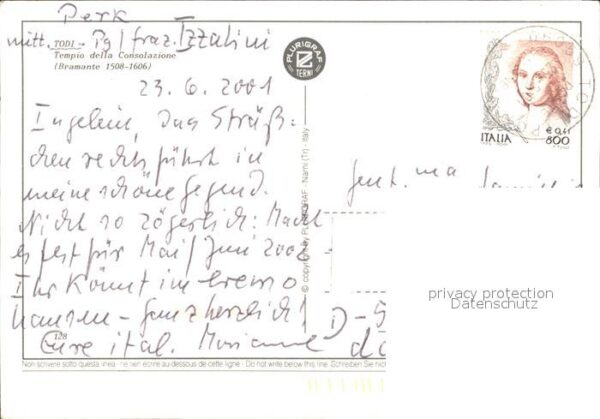 Perk
mitt. - Pg / fraz. Izzalini
TODI -
Tempio della Consolazione
(Bramante 1508-1606)
23.6.2001
Ingelein, das Sträß-
chen rechts führt in
meine schöne gegend.
Nicht so zögerlich: Macht
es fest für Mai/Juni 2002
Ihr könnt im eremo
hausen - ganz herzlich!
Eure ital. Marianne
128
PLURIGRAF
TERNI
© copyright by PLURIGRAF - Narni (Tr) - Italy
ITALIA
€ 0,41
800
gent.ma famiglia
D-5
privacy protection
Datenschutz
Non scrivere sotto questa linea - ne rien ecrire au-dessous de cette ligne - Do not write below this line. Schreiben Sie nicht